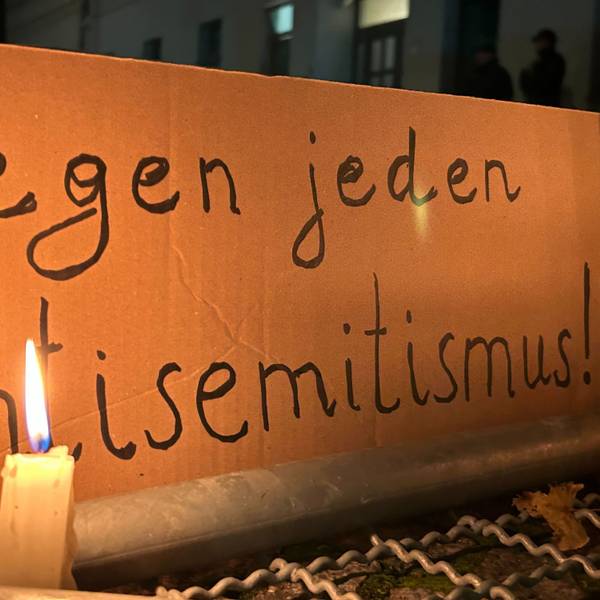 egen jeden
ntisemitismus!